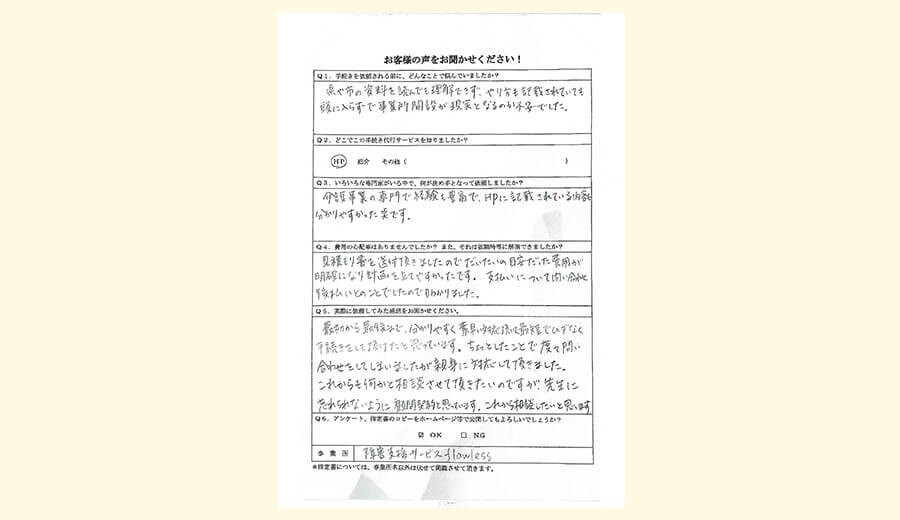 お客様の声をお聞かせください！
Q1．手続きを依頼される前に、どんなことで悩んでいましたか？
県や市の資料を読んでも理解できず、やり方も記載されていても
頭に入らずで事業所開設が現実となるのか不安でした。
Q2．どこでこの手続き代行サービスを知りましたか？
HP 紹介 その他（ ）
Q3．いろいろな専門家がいる中で、何が決め手となって依頼しましたか？
介護事業の専門で経験も豊富で、HPに記載されている内容も
分かりやすかった点です。
Q4．費用の心配事はありませんでしたか？また、それは依頼時等に解消できましたか？
見積もり書を送付頂きましたのでだいたいの目安だった費用が
明確になり計画を立てやすかったです。 支払いについて問い合わせ
後払いとのことでしたので助かりました。
Q5．実際に依頼してみた感想をお聞かせください。
最初から最後まで、分かりやすく素早い対応頂いて最短でひずなく
手続きをして頂けたと思っています。ちょっとしたことで度々問い
合わせをしてしまいましたが親身に対応して頂きました。
これからも何かと相談させて頂きたいのですが先生に
忘れられないように顧問契約と思っています。これから相談したいと思います
Q6．アンケート、指定書のコピーをホームページ等で公開してもよろしいでしょうか？
☑ OK □ NG
事業所 障害支援サービス flawless
※指定書については、事業所名以外は伏せて掲載させて頂きます。